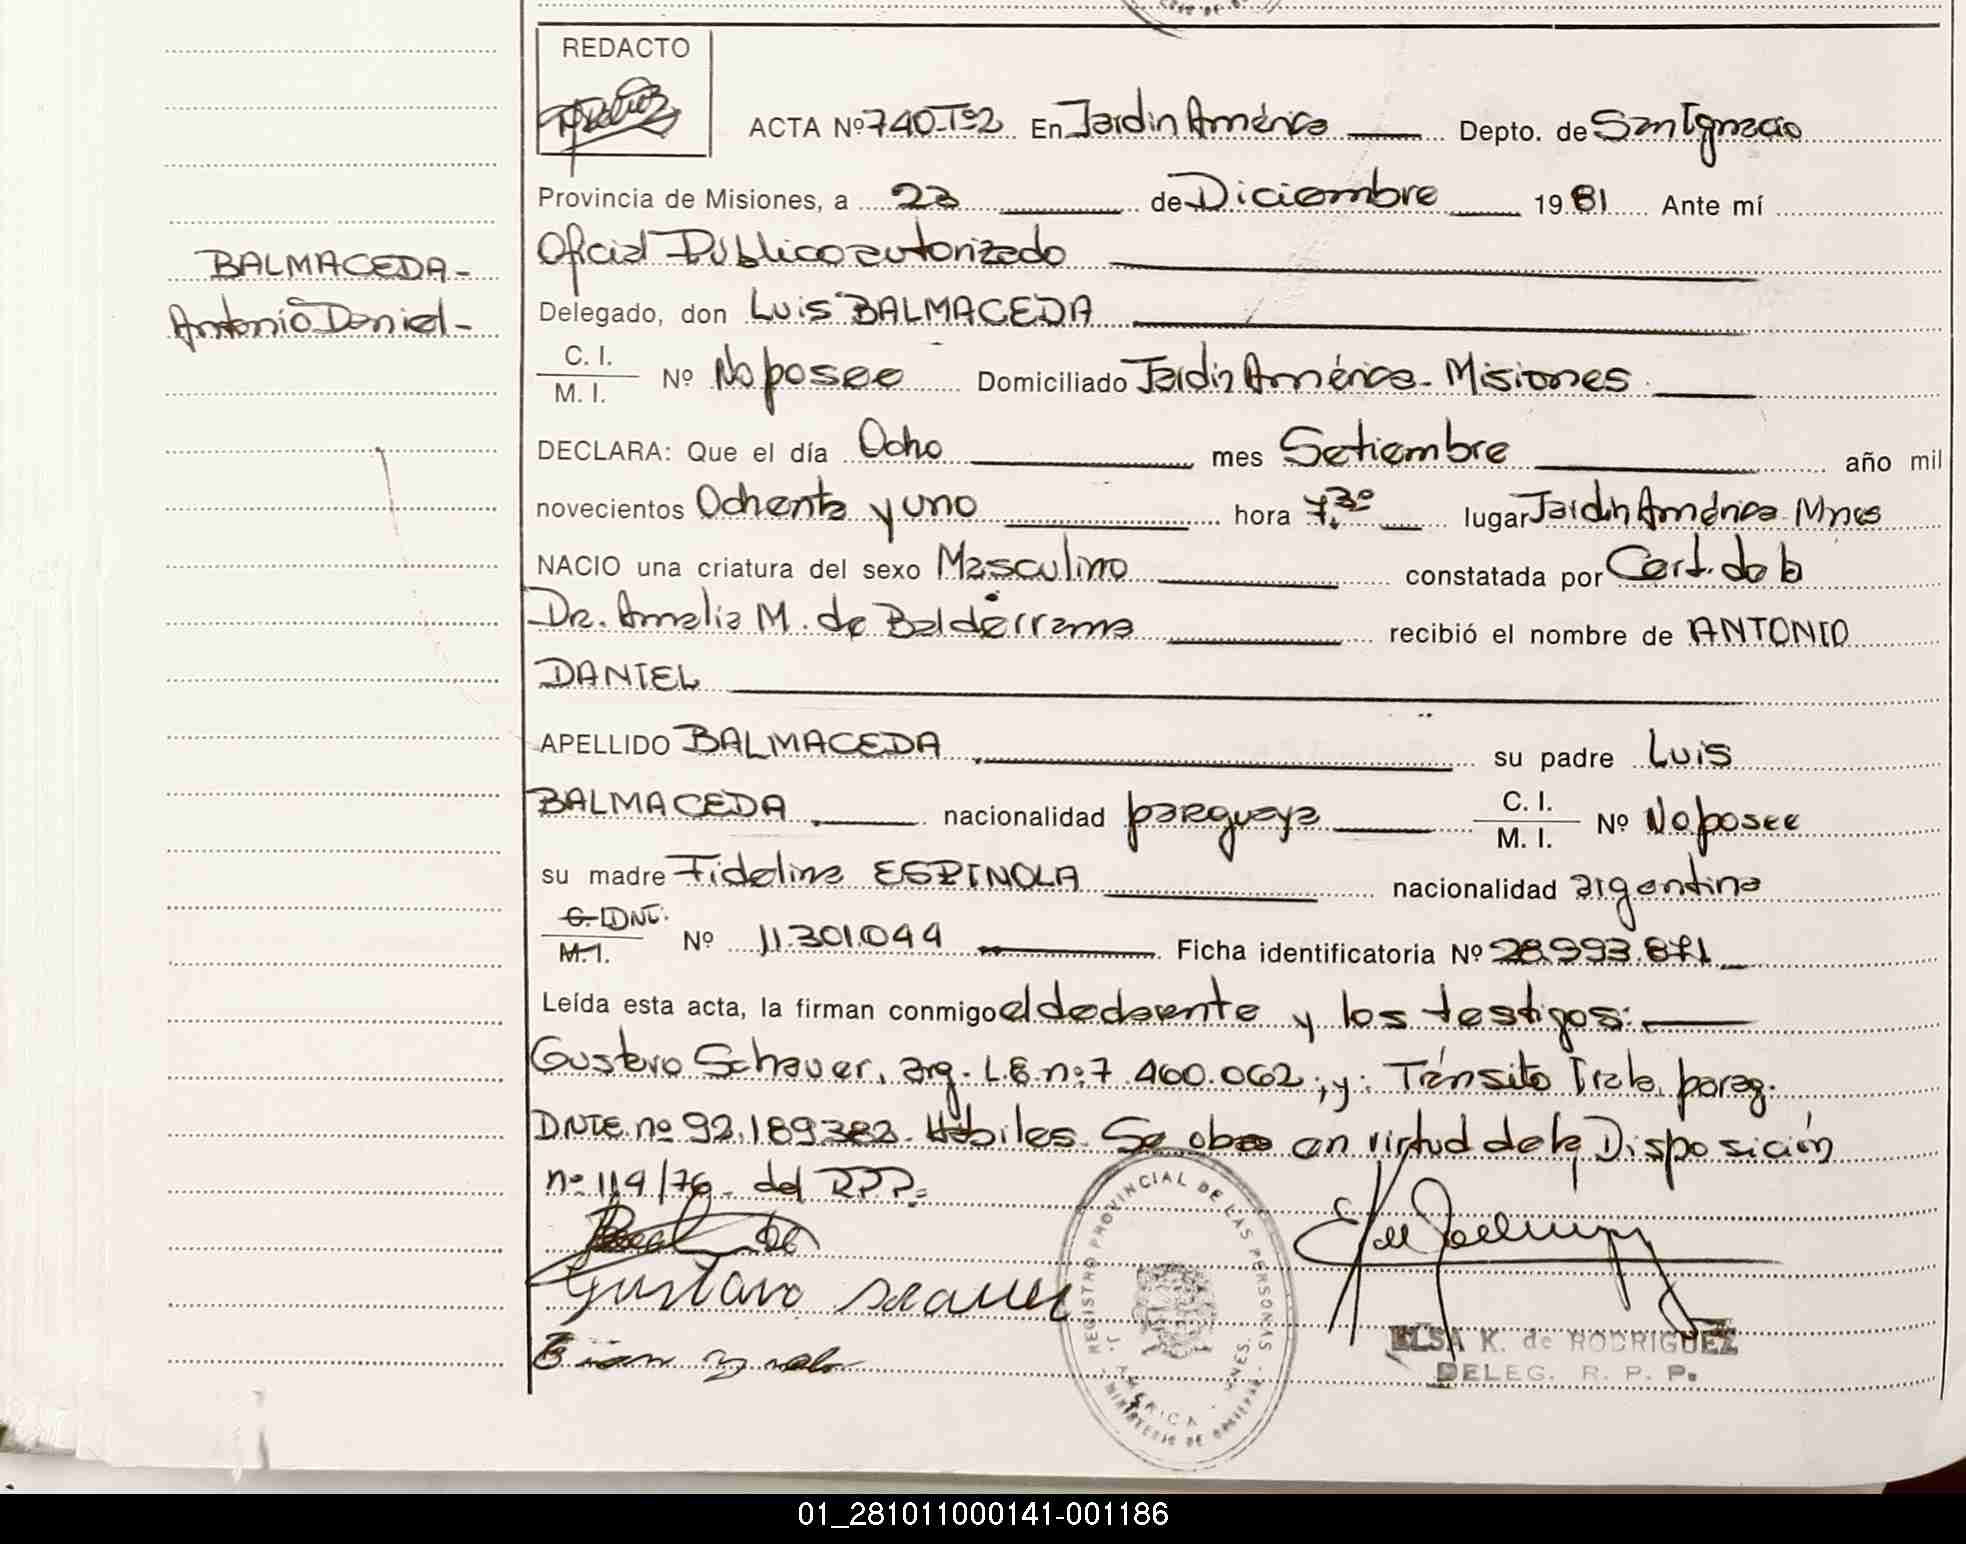 REDACTO
ACTA Nº 740-Tº2 En Jardin América Depto. de San Ignacio
Provincia de Misiones, a 23 de Diciembre 1981 Ante mí
Oficial Público autorizado
BALMACEDA-
Antonio Daniel-
Delegado, don Luis BALMACEDA
C. I.
M. I. Nº No posee Domiciliado Jardin América. Misiones
DECLARA: Que el día Ocho mes Setiembre año mil
novecientos Ochenta y uno hora 7,30 lugar Jardin América Mnes
NACIO una criatura del sexo Masculino constatada por Cert. de la
Dra. Amalia M. de Balderrama recibió el nombre de ANTONIO
DANIEL
APELLIDO BALMACEDA su padre Luis
BALMACEDA nacionalidad paraguaya C. I.
M. I. Nº No posee
su madre Fidelina ESPINOLA nacionalidad argentina
C. I. DNI.
M. I. Nº 11.301.044 Ficha identificatoria Nº 28.993.871
Leída esta acta, la firman conmigo el declarante y los testigos:
Gustavo Schauer, arg. L.E. nº: 7.400.062; y: Tránsito Irala, parag.
DNIE. nº 92.189.382. Hábiles. Se obra en virtud de la Disposición
nº 114/76. del RPP.
Gustavo
REGISTRO PROVINCIAL DE LAS PERSONAS
J. AMERICA - MNES.
MINISTERIO DE
ELSA K. de RODRIGUEZ
DELEG. R. P. P.
01_281011000141-001186